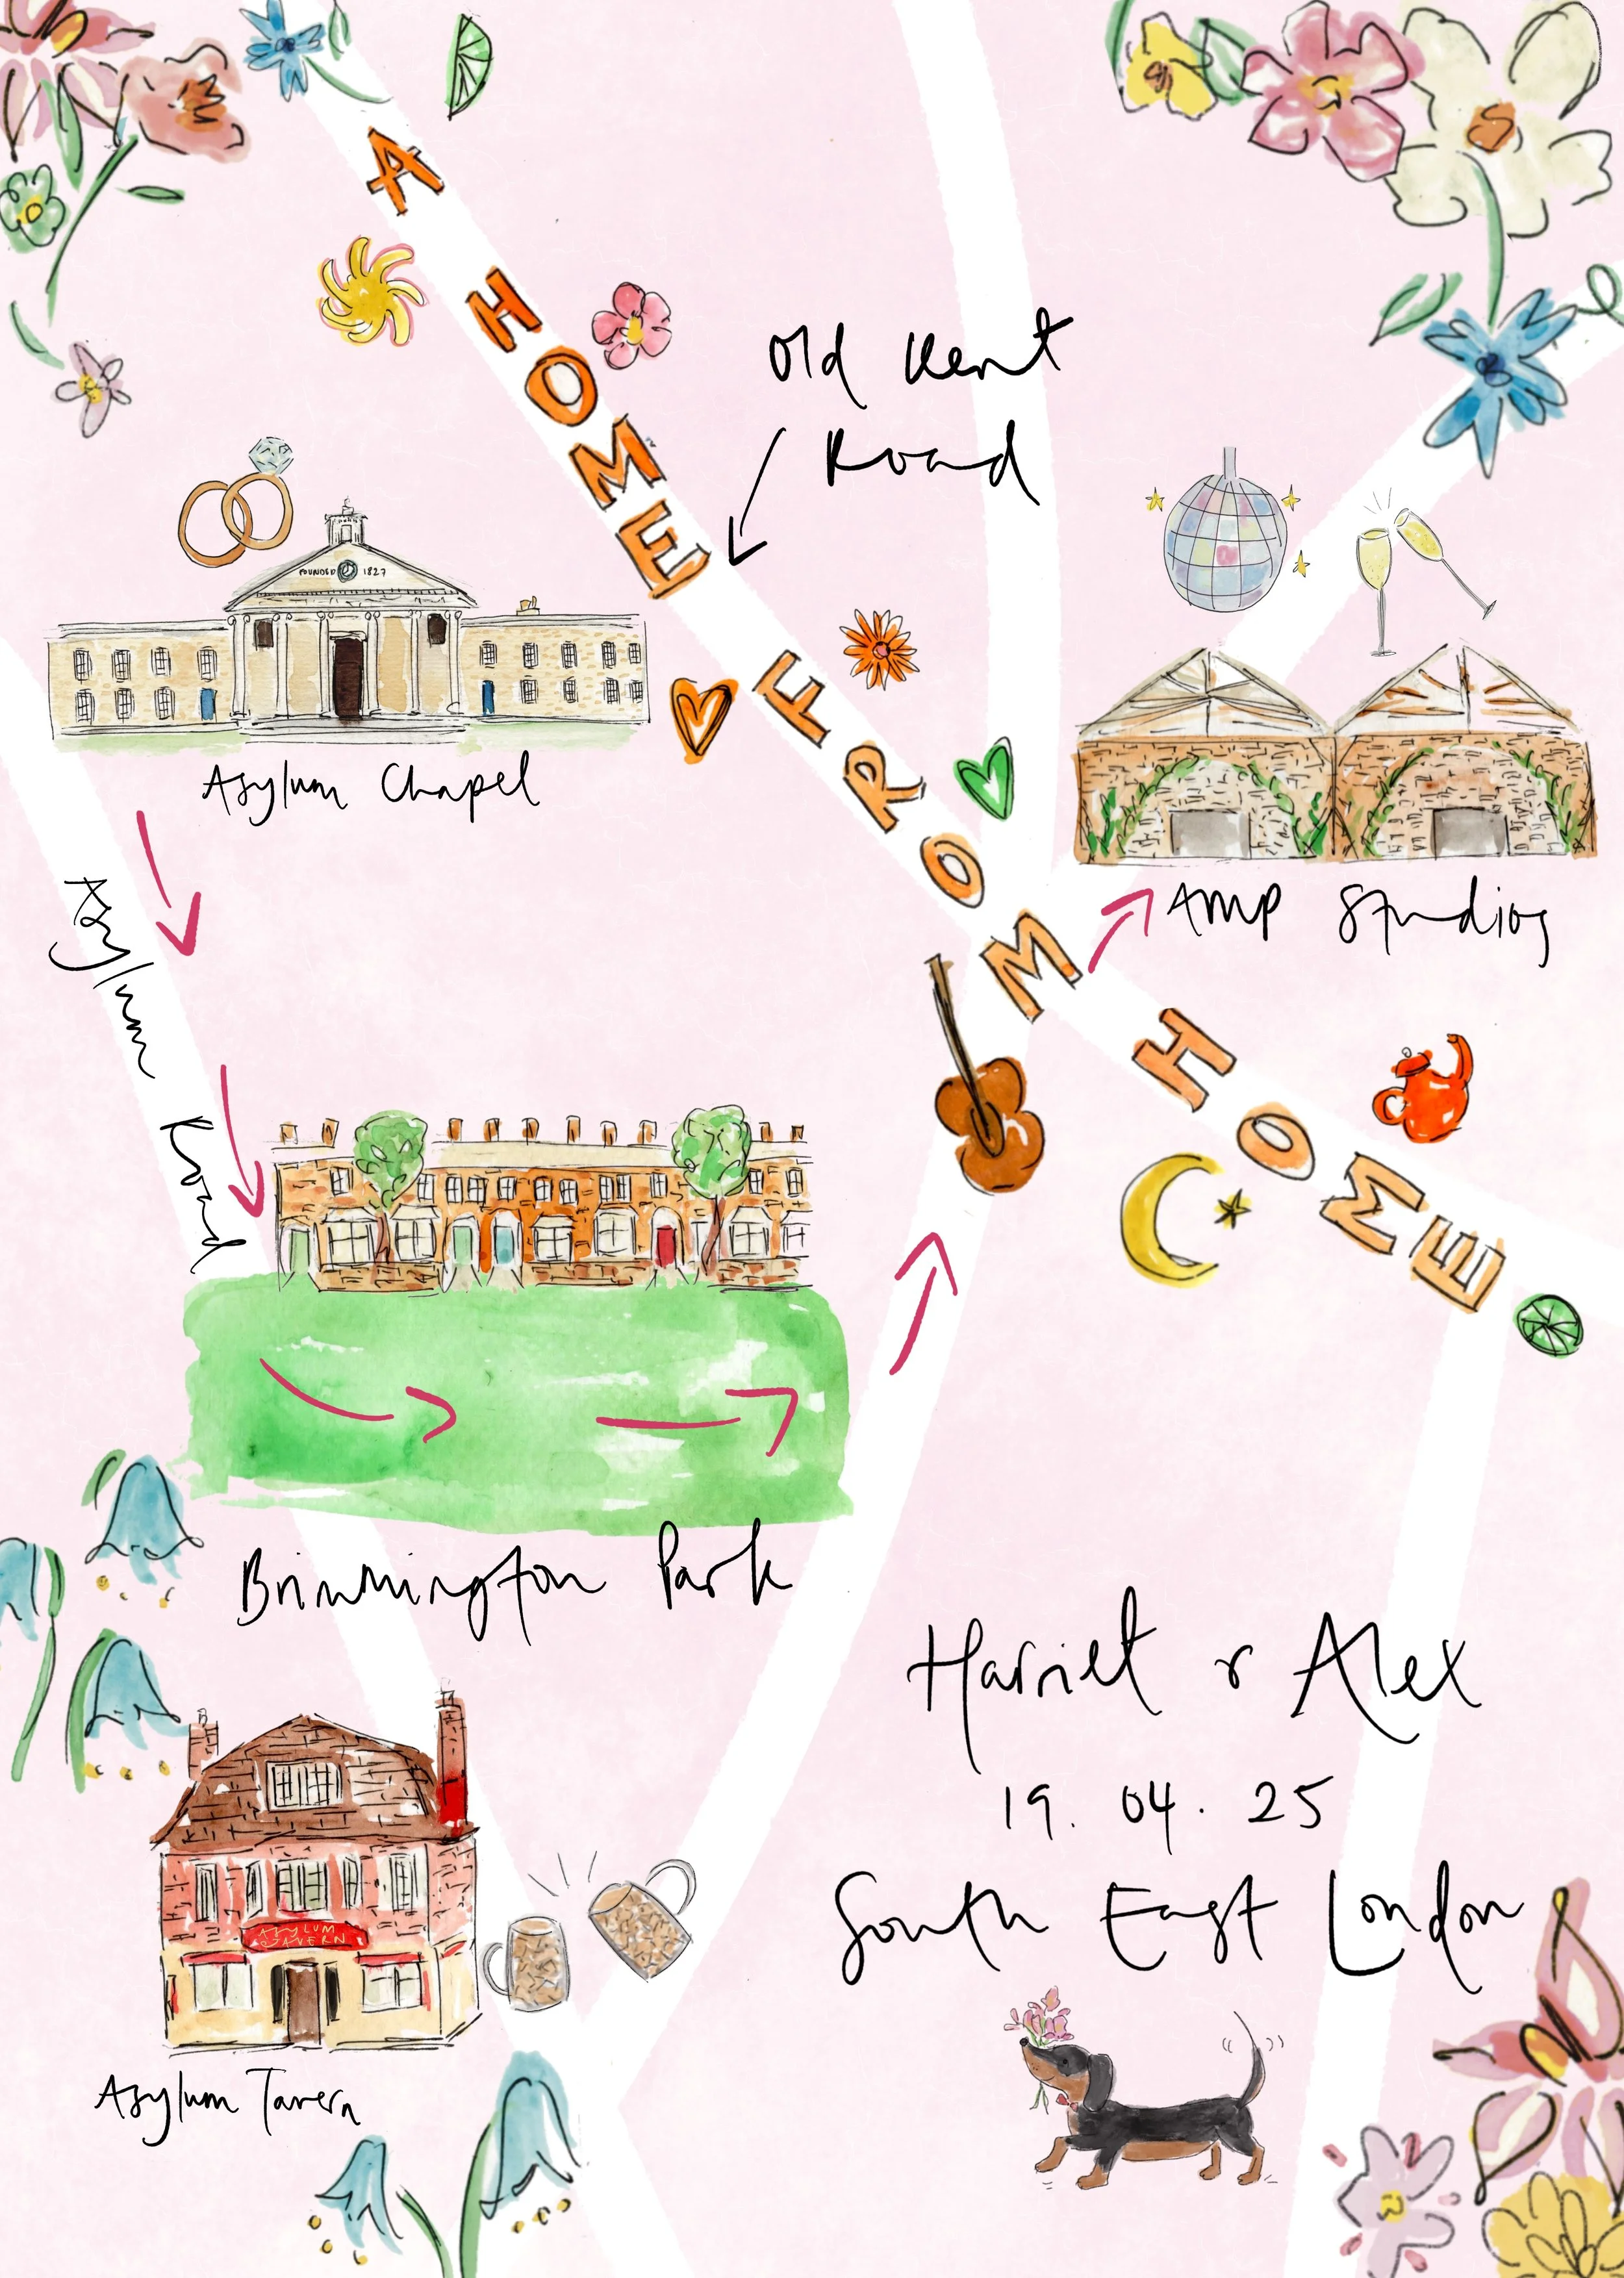 A HOME FROM HOME
Old Kent
Road
FOUNDED 1827
Asylum Chapel
Amp Studios
Asylum Road
Brimmington Park
Harriet & Alex
19.04.25
South East London
ASYLUM
TAVERN
Asylum Tavern